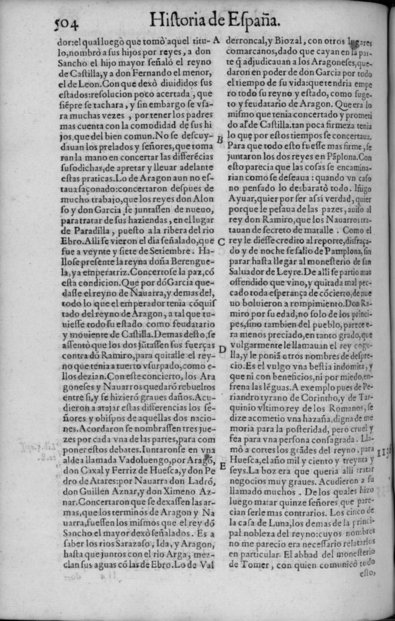 504 Historia de España.
dor: el qual luegò que tomò aquel titu-
lo, nombrò a sus hijos por reyes, a don
Sancho el hijo mayor señalò el reyno
de Castilla, y a don Fernando el menor,
el de Leon. Con que dexò diuididos sus
estados: resolucion poco acertada, que
siẽpre se tachara, y sin embargo se vsa-
ra muchas vezes, por tener los padres
mas cuenta con la comodidad de sus hi-
jos, que del bien comun. No se descuy-
dauan los prelados y señores, que toma
ran la mano en concertar las differẽcias
susodichas, de apretar y lleuar adelante
estas praticas. Lo de Aragon aun no es-
taua saçonado: concertaron despues de
mucho trabajo, que los reyes don Alon
so y don Garcia se juntassen de nueuo,
para tratar de sus haziendas, en el lugar
de Paradilla, puesto a la ribera del rio
Ebro. Alli se vieron el dia señalado, que
fue a veynte y siete de Setiembre. Ha-
llose presente la reyna doña Berengue-
la, ya emperatriz. Concertose la paz, cõ
esta condicion. Que por dõ Garcia que-
dasse el reyno de Nauarra, y demas del,
todo lo que el emperador tenia cõquis
tado del reyno de Aragon, a tal que tu-
uiesse todo su estado como feudatario
y mouiente de Castilla. Demas desto, se
assentò que los dos jũtassen sus fuerças
contra dõ Ramiro, para quitalle el rey-
no que tenia a tuerto vsurpado, como e-
llos dezian. Con este concierto, los Ara
goneses y Nauarros quedarõ rebueltos
entre si, y se hizierõ graues daños. Acu-
dieron a atajar estas differencias los se-
ñores y obispos de aquellas dos nacio-
nes. Acordaron se nombrassen tres jue-
zes por cada vna de las partes, para com
poner estos debates. Iuntaronse en vna
aldea llamada Vadoluengo, por Aragõ,
don Caxal y Ferriz de Huesca, y don Pe
dro de Atares: por Nauarra don Ladrõ,
don Guillen Aznar, y don Ximeno Az-
nar. Concertaron que se dexassen las ar-
mas, que los terminos de Aragon y Na
uarra, fuessen los mismos que el rey dõ
Sancho el mayor dexò señalados. Es a
saber los rios Sarazoso, Ida, y Aragon,
hasta que juntos con el rio Arga, mez-
clan sus aguas cõ las de Ebro. Lo de Val
A
B
C
D
E
derroncal, y Biozal, con otros lugares
comarcanos, dado que cayan en la par-
te q̃ adjudicauan a los Aragoneses, que-
daron en poder de don Garcia por todo
el tiempo de su vida: que tendria empe
ro todo su reyno y estado, como suge-
to y feudatario de Aragon. Que era lo
mismo que tenia concertado y prometi
do al de Castilla. tan poca firmeza tenia
lo que por estos tiempos se concertaua.
Para que todo esto fuesse mas firme, se
juntaron los dos reyes en Pãplona. Con
esto parecia que las cosas se encamina-
rian como se deseaua: quando vn caso
no pensado lo desbaratò todo. Iñigo
Ayuar, quier por ser assi verdad, quier
porque le pesaua de las pazes, auisò al
rey don Ramiro, que los Nauarros tra-
tauan de secreto de matalle. Como el
rey le diesse credito al reporte, disfraça-
do y de noche se salio de Pamplona, sin
parar hasta llegar al monesterio de San
Saluador de Leyre. De alli se partio mas
offendido que vino, y quitada mal pe-
cado toda esperança de cõcierto, de nue
uo boluieron a rompimiento. Don Ra-
miro por su edad, no solo de los princi-
pes, sino tambien del pueblo, parece e-
ra menos preciado, en tanto grado, que
vulgarmente le llamauan el rey cogu-
lla, y le ponian otros nombres de despre-
cio. Es el vulgo vna bestia indomita, y
que ni con beneficios, ni por miedo, en-
frena las lẽguas. A exemplo pues de Pe-
riandro tyrano de Corintho, y de Tar-
quinio vltimo rey de los Romanos, se
dize acometio vna hazaña, digna de me
moria para la posteridad, pero cruel y
fea para vna persona consagrada. Lla-
mò a cortes los grãdes del reyno, para
Huesca, el año mil y ciento y treynta y
seys. La boz era que queria alli tratar
negocios muy graues. Acudieron a su
llamado muchos. De los quales hizo
luego matar quinze señores que pare-
cian serle mas contrarios. Los cinco de
la casa de Luna, los demas de la princi-
pal nobleza del reyno: cuyos nombres
no me parecio era necessario relatarlos
en particular. El abbad del monesterio
de Tomer, con quien comunicò todo
esto,